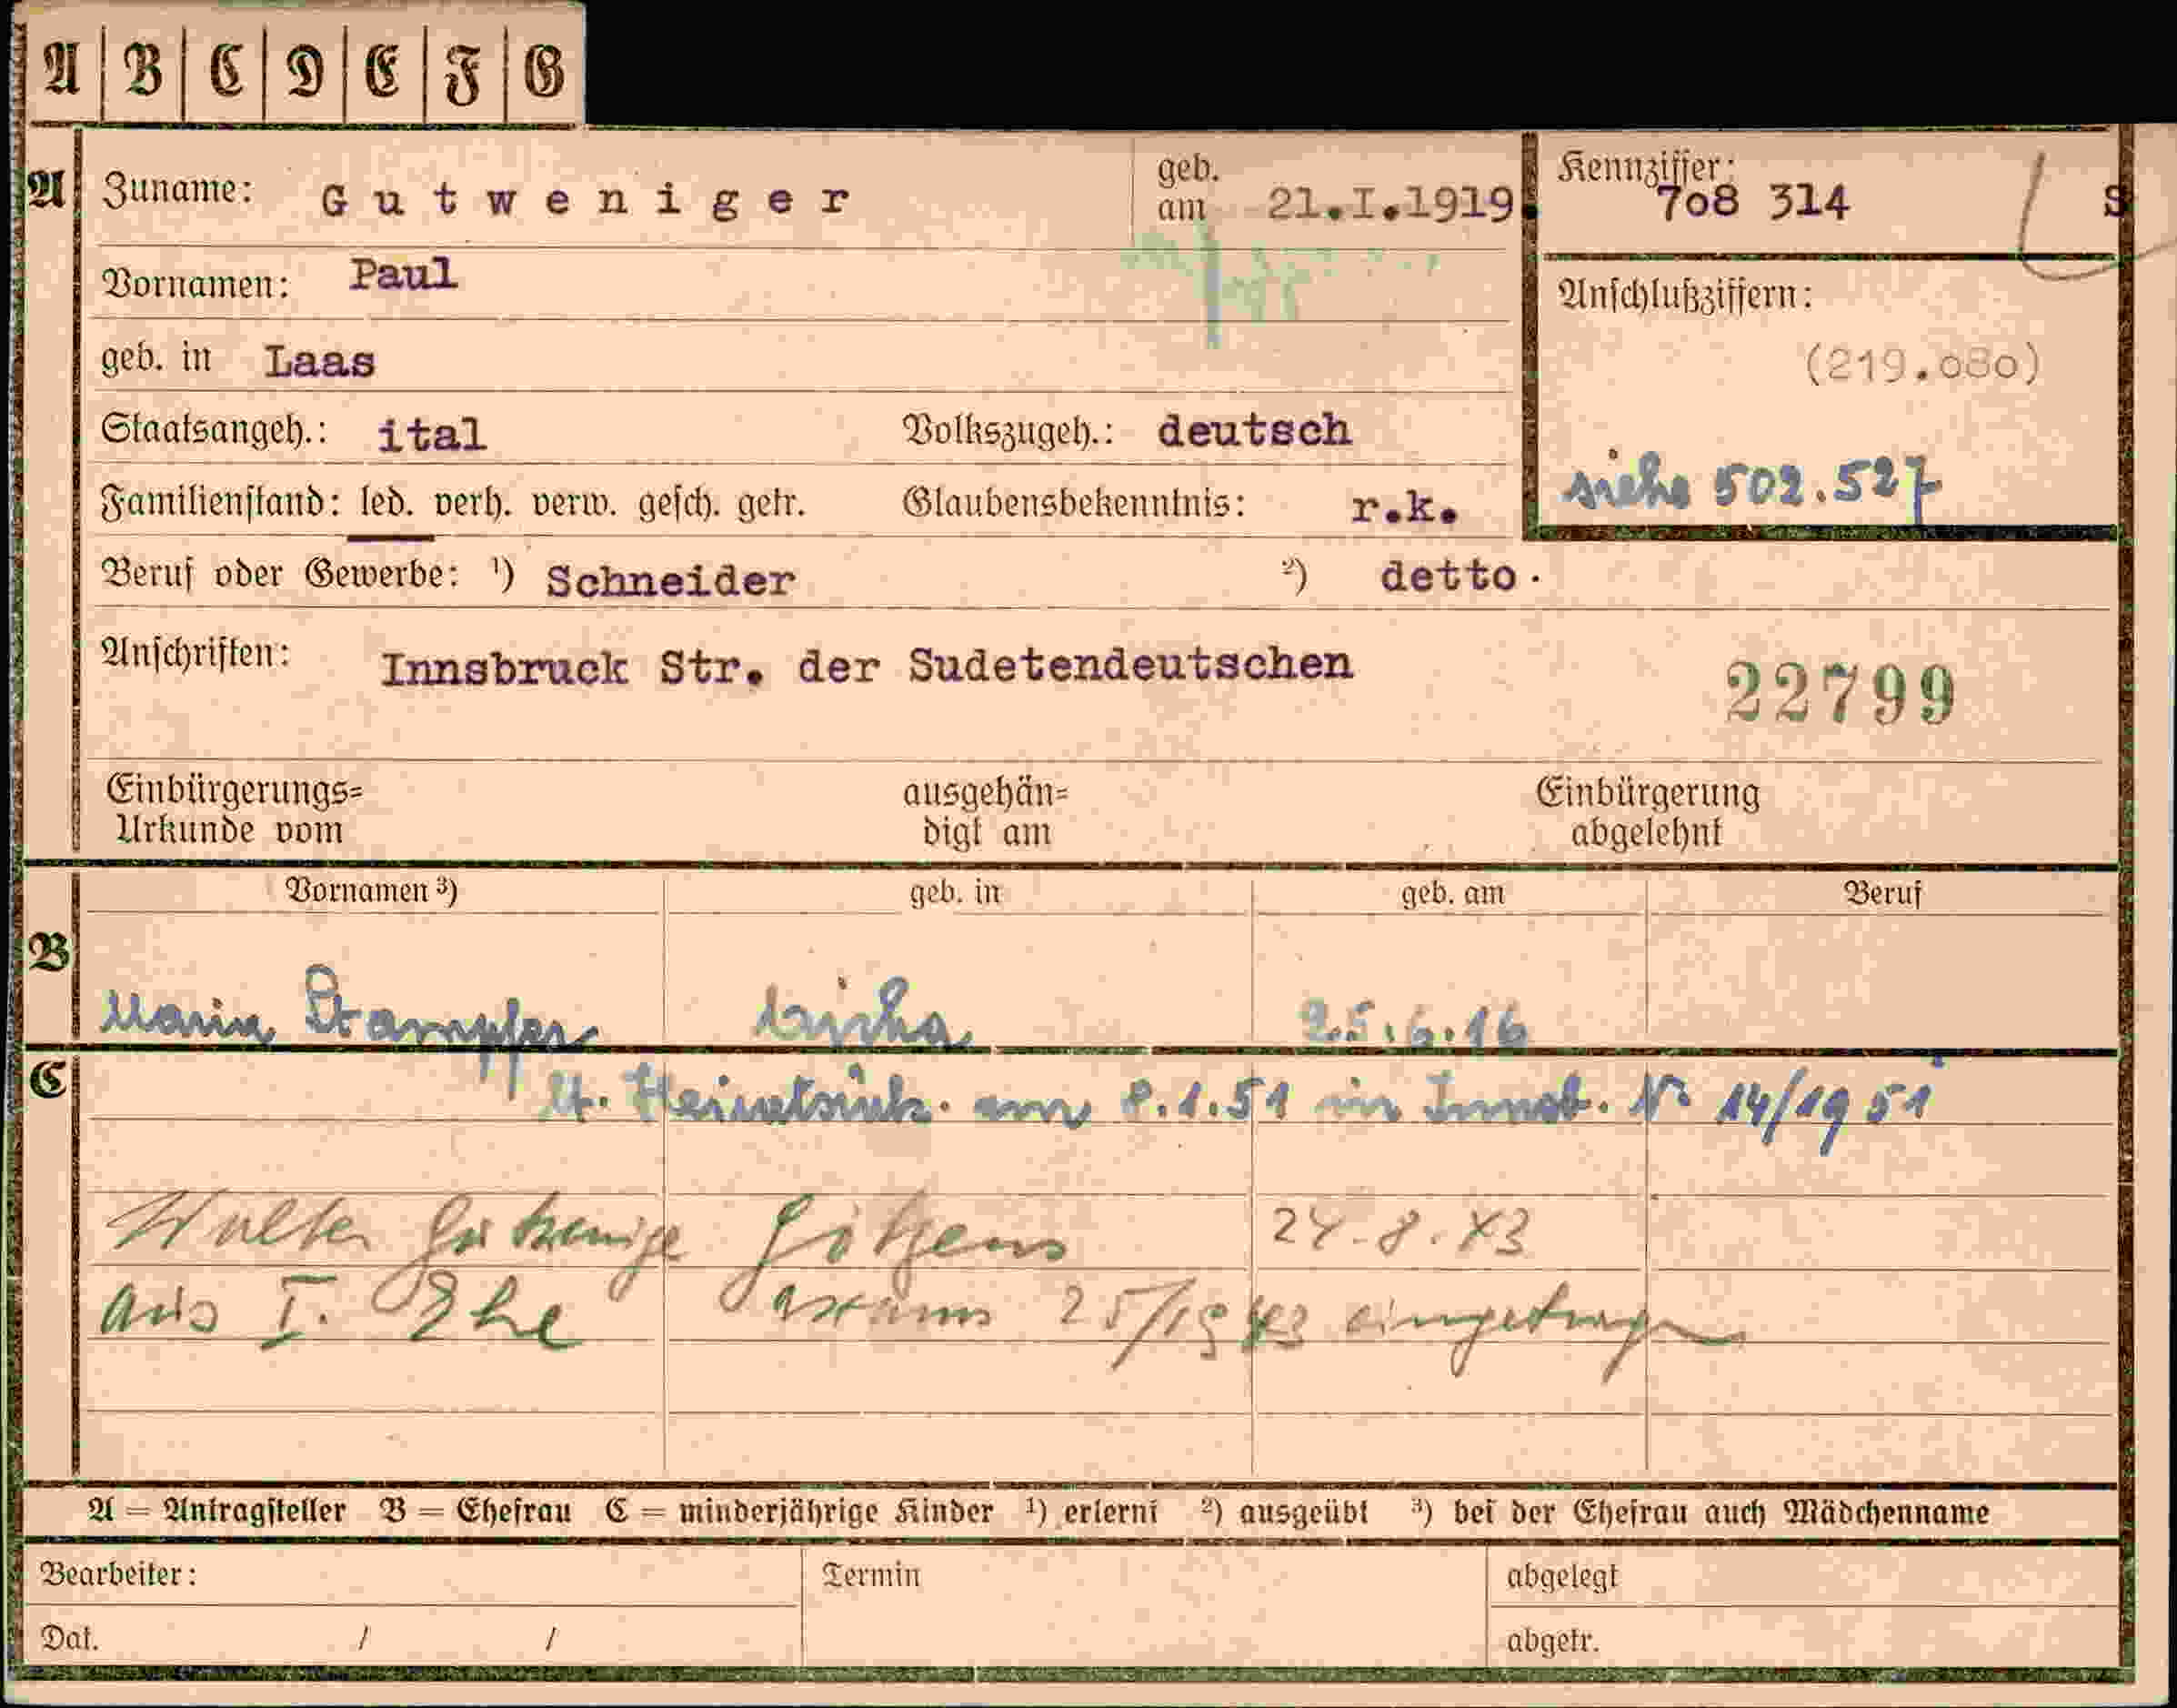 A B C D E F G
A Zuname: Gutweniger geb. am 21.I.1919. Kennziffer: 7o8 314 S
Vornamen: Paul
Anschlußziffern:
geb. in Laas (219.o8o)
Staatsangeh.: ital Volkszugeh.: deutsch
siehe 502.527
Familienstand: led. verh. verw. gesch. getr. Glaubensbekenntnis: r.k.
Beruf oder Gewerbe: ¹) Schneider ²) detto.
Anschriften: Innsbruck Str. der Sudetendeutschen 22799
Einbürgerungs= ausgehän= Einbürgerung
Urkunde vom digt am abgelehnt
Vornamen ³) geb. in geb. am Beruf
B
Maria Stampfer 25.6.16
C
lt. Heiratsurk. am 8.1.51 in Innsb. No 14/1951
Walter Gutweniger Götzens 24.8.43
aus I. Ehe Axams 25/1943 eingetragen
A = Antragsteller B = Ehefrau C = minderjährige Kinder ¹) erlernt ²) ausgeübt ³) bei der Ehefrau auch Mädchenname
Bearbeiter: Termin abgelegt
Dat. / / abgetr.